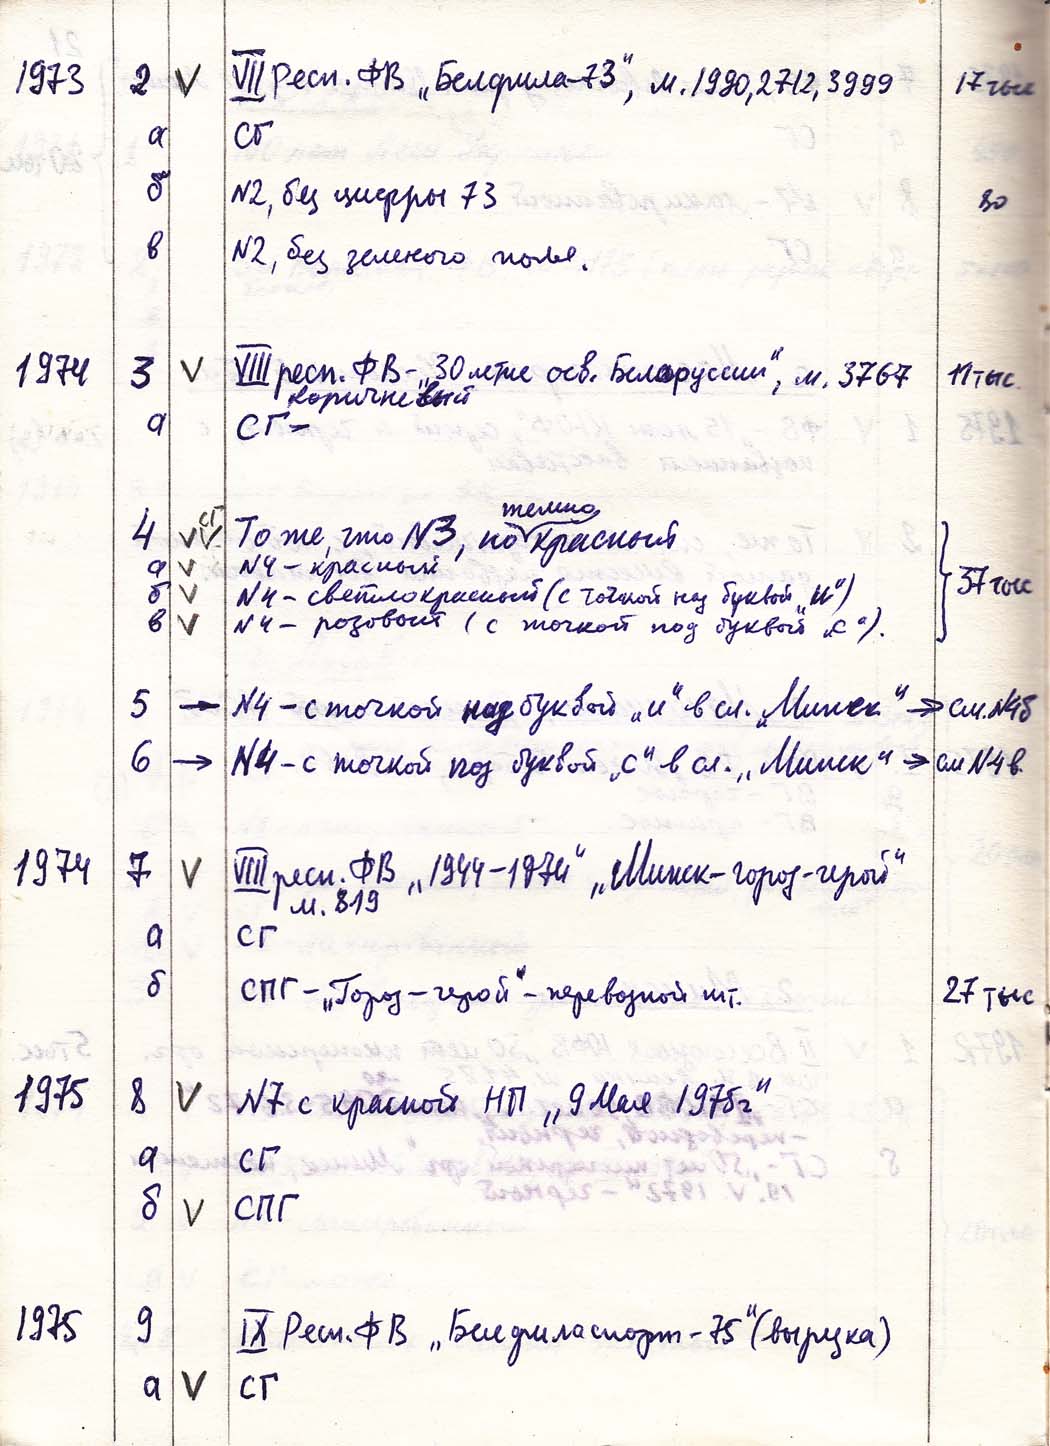 1973 2 V VII Респ. ФВ „Белфила-73", м. 1990, 2712, 3999 17 тыс
а СГ
б N2, без цифры 73 80
в N2, без зеленого поля.
1974 3 V VIII респ. ФВ - „30 летие осв. Белоруссии", м. 3767 11 тыс.
коричневый
а СГ -
темно
4 V СГ V То же, что N3, но красный
а V N4 - красный
б V N4 - светлокрасный (с точкой над буквой „и") 37 тыс
в V N4 - розовый (с точкой под буквой „с").
5 → N4 - с точкой над буквой „и" в сл. „Минск" → см. N4б
6 → N4 - с точкой под буквой „с" в сл. „Минск" → см N4в.
1974 7 V VIII респ. ФВ „1944-1974" „Минск-город-герой"
м. 819
а СГ
б СПГ - „Город-герой" - перевозной шт. 27 тыс
1975 8 V N7 с красной НП „9 Мая 1975г"
а СГ
б V СПГ
1975 9 IX Респ. ФВ „Белфиласпорт-75" (вырезка)
а V СГ